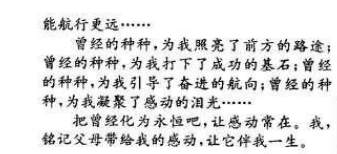 能航行更远……
曾经的种种,为我照亮了前方的路途;
曾经的种种,为我打下了成功的基石;曾经
的种种,为我引导了奋进的航向;曾经的种
种,为我凝聚了感动的泪光……
把曾经化为永恒吧,让感动常在。我,
铭记父母带给我的感动,让它伴我一生。